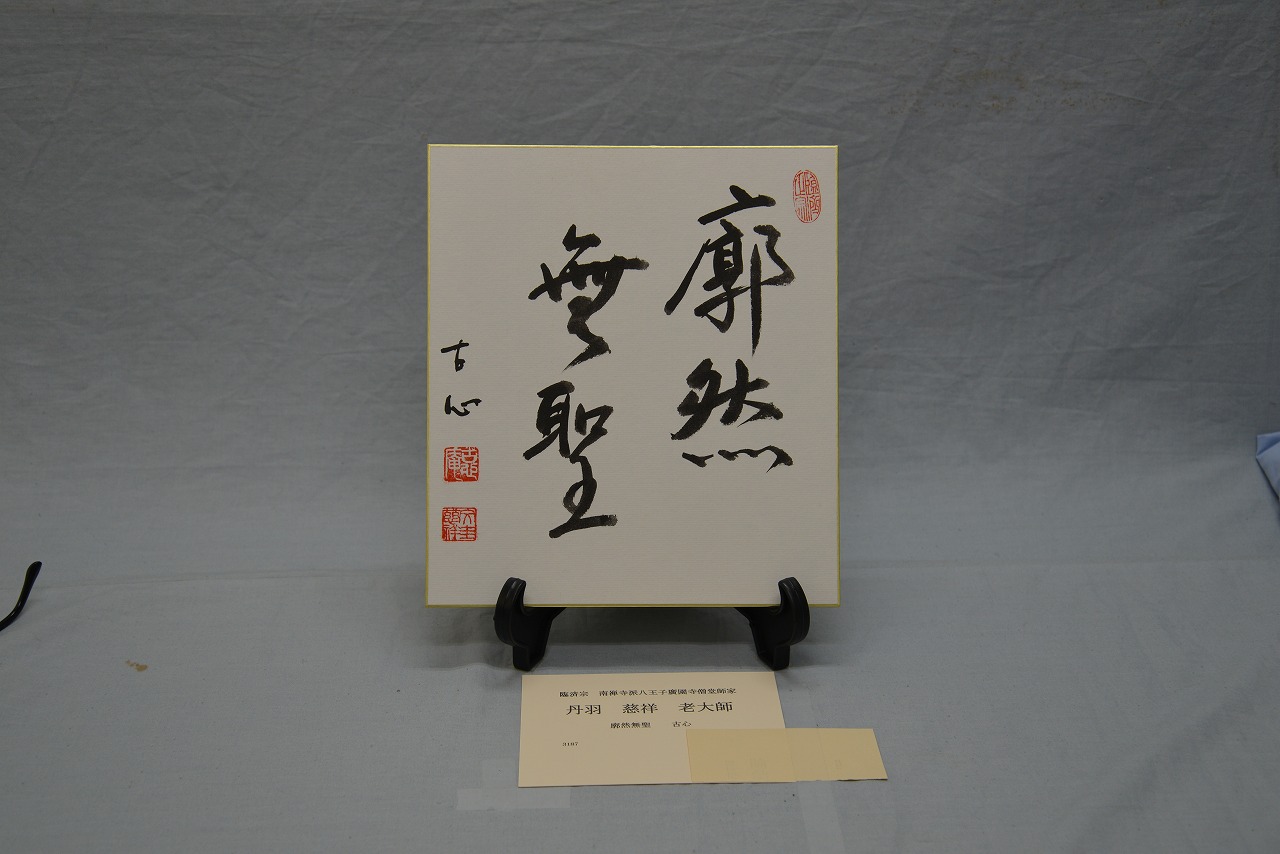 廓然
無聖
古心
臨済宗　南禅寺派八王子廣園寺僧堂師家
丹羽　慈祥　老大師
廓然無聖　古心
3197